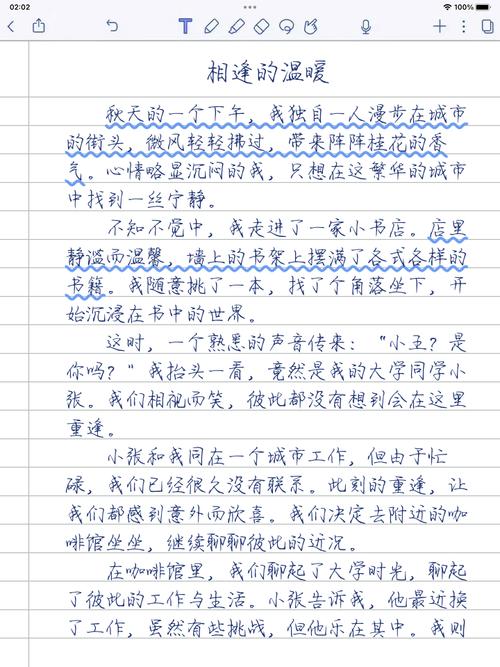 02:02
100%
相逢的温暖
秋天的一个下午，我独自一人漫步在城市
的街头，微风轻轻拂过，带来阵阵桂花的香
气。心情略显沉闷的我，只想在这繁华的城市
中找到一丝宁静。
不知不觉中，我走进了一家小书店。店里
静谧而温馨，墙上的书架上摆满了各式各样的
书籍。我随意挑了一本，找了个角落坐下，开
始沉浸在书中的世界。
这时，一个熟悉的声音传来：“小五？是
你吗？”我抬头一看，竟然是我的大学同学小
张。我们相视而笑，彼此都没有想到会在这里
重逢。
小张和我同在一个城市工作，但由于忙
碌，我们已经很久没有联系。此刻的重逢，让
我们都感到意外而欣喜。我们决定去附近的咖
啡馆坐坐，继续聊聊彼此的近况。
在咖啡馆里，我们聊起了大学时光，聊起
了彼此的工作与生活。小张告诉我，他最近换
了工作，虽然有些挑战，但他乐在其中。我则